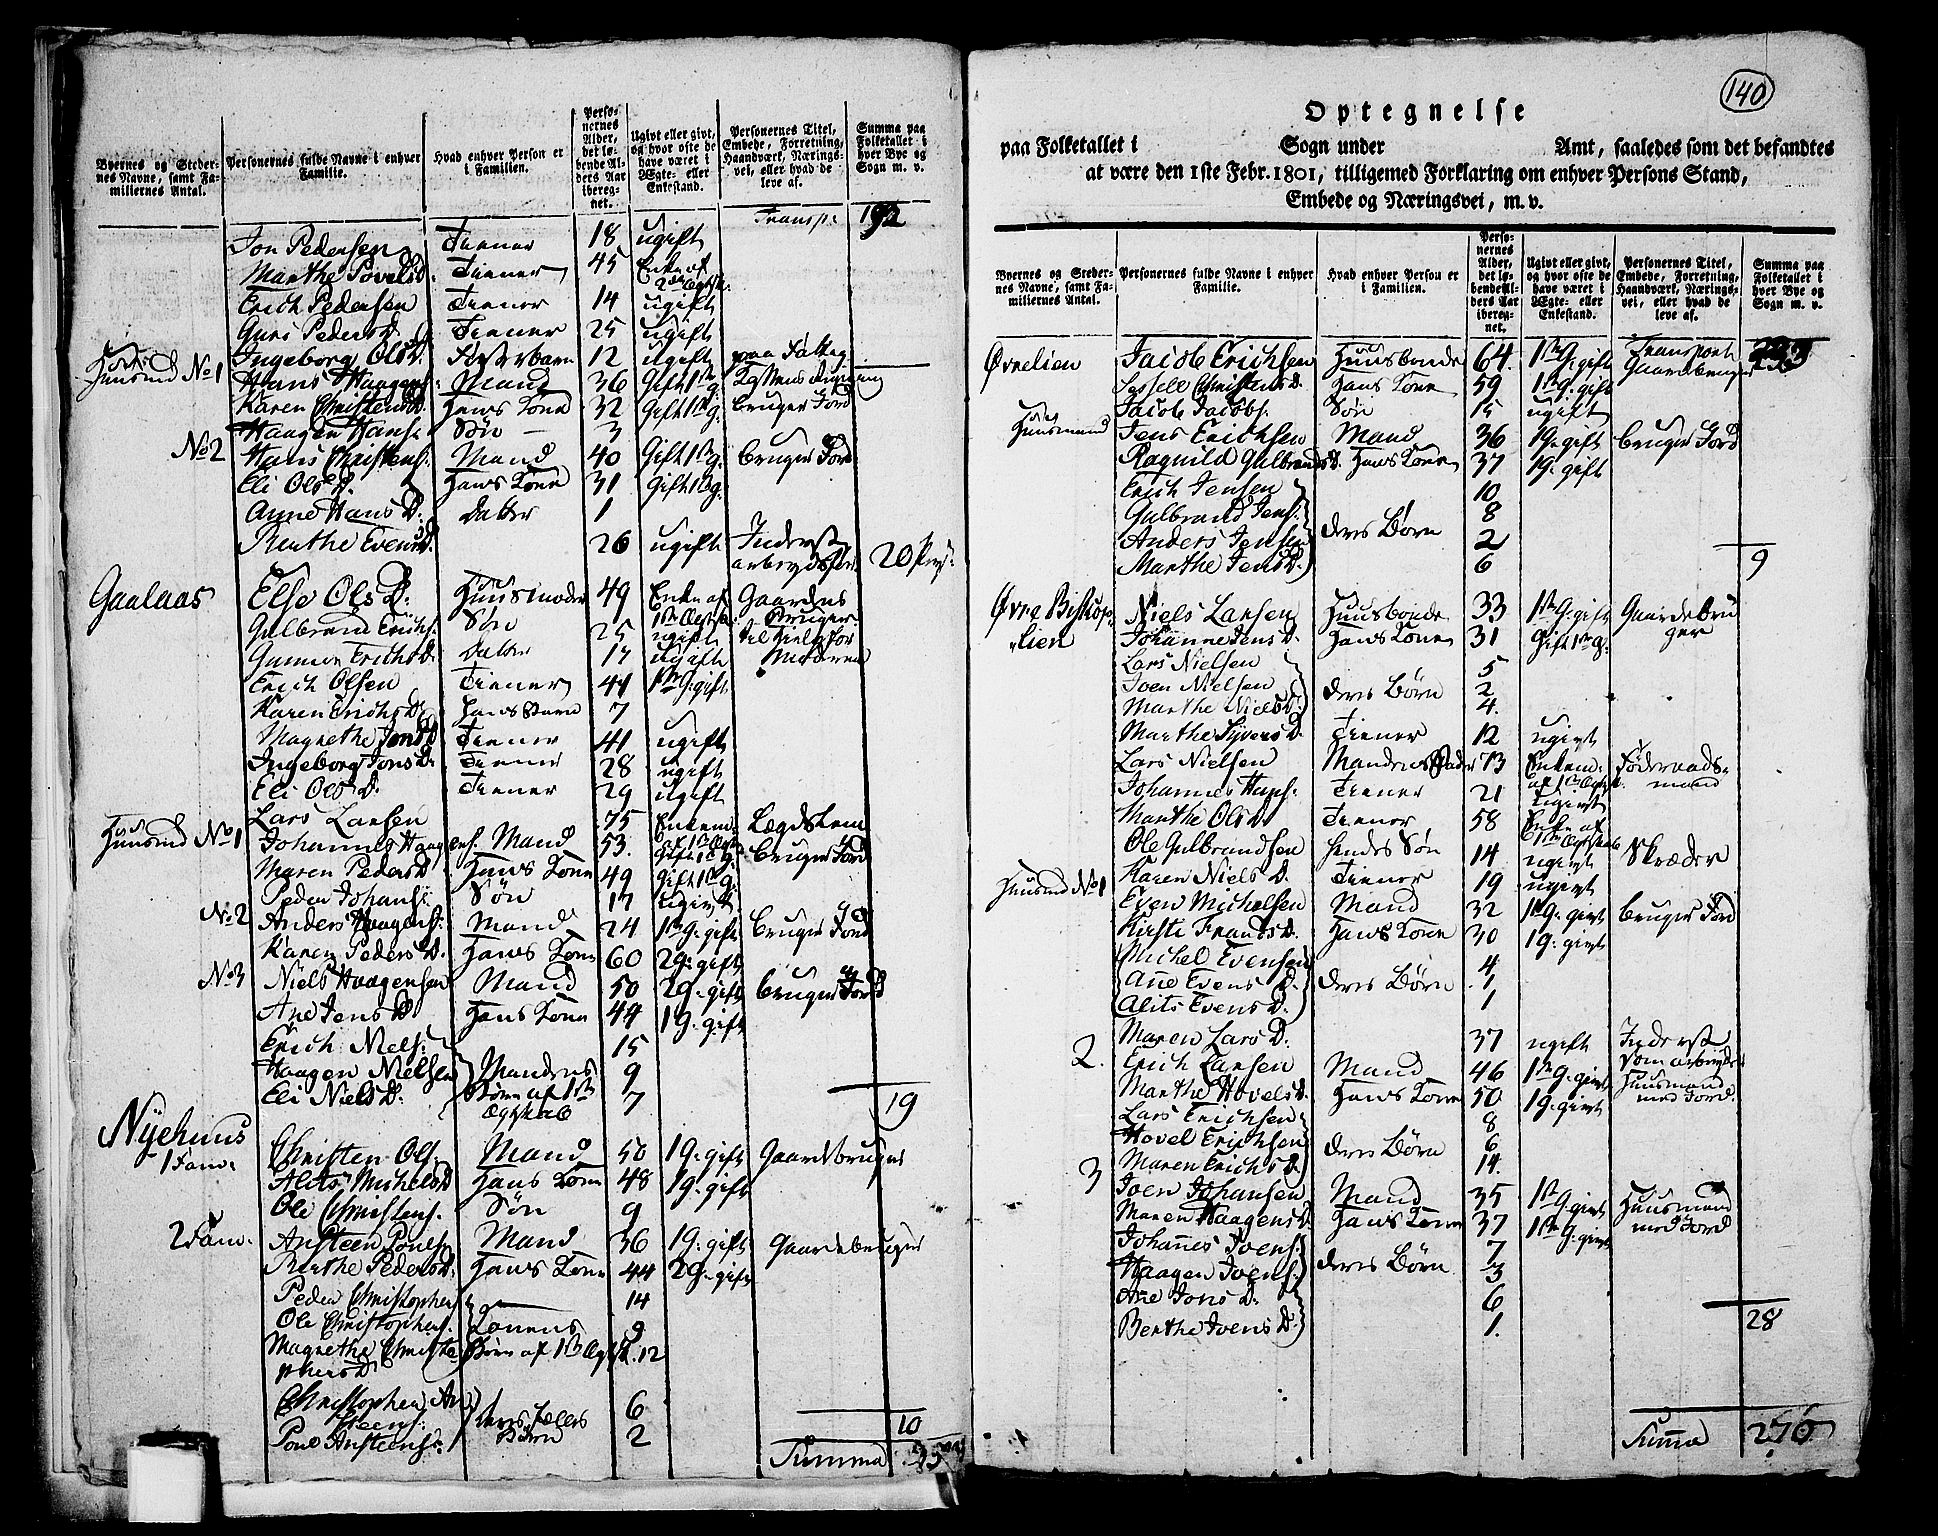 Byernes og Steder-
nes Navne, samt Fa-
miliernes Antal.
Personernes fulde Navne i enhver
Familie.
Hvad enhver Person er
i Familien.
Perso-
nernes
Alder,
det lø-
bende Al-
ders Aar
ibereg-
net.
Ugivt eller givt,
og hvor ofte de
have været i
Ægte- eller
Enkestand.
Personernes Titel,
Embede, Forretning,
Haandværk, Nærings-
vei, eller hvad de
leve af.
Summa paa
Folketallet i
hver Bye og
Sogn m. v.
Transp: 192
Jon Pedersen Tiener 18 ugift
Marthe Povels D. Tiener 45 Enke af
Erich Pedersen Tiener 14 ugift
Guri Peders D. Tiener 25 ugift
Ingeborg Ols D. Fosterbarn 12 ugift
Huusmd No 1 Hans Haagens: Mand 36 Gift 1ste g:
Karen Christens D. Hans Kone 32 Gift 1ste g: bruger Jord
Haagen Hans: Søn 3
No 2 Hans Christens: Mand 40 Gift 1ste g: bruger Jord
Eli Ols D. Hans Kone 31 Gift 1ste g:
Anne Hans D. datter 1
Marthe Evens D. 26 ugift Inderst 20 Pers:
Gaalaas Else Ols D. Huusmoder 49 Enke af Gaardens
1ste Bruger
Gulbrand Erichs: Søn 25 ugift
Gunnor Erichs D. datter 17 ugift Moderen
Erich Olsen Tiener 44 1ste G: gift
Karen Erichs D. Hans Barn 7
Magrethe Jons D. Tiener 41 ugift
Ingeborg Jons D. Tiener 28 ugift
Eli Ols D. Tiener 29 ugift
Lars Larsen 75 Enkem: Lægdslem
Huusmd No 1 Johannes Haagens. Mand 53. Gift 1ste g: bruger Jord
Maren Peders D. Hans Kone 49 Gift 1ste g:
Peder Johans: Søn 17 Ugivt
No 2 Anders Haagens: Mand 24 1ste G: gift bruger Jord
Karen Peders D. Hans Kone 60 2 G: gift
No 3 Niels Haagensen Mand 50 2 G: gift bruger Jord
Ane Jens D. Hans Kone 44 1 G: gift
Erich Niels: 15
Haagen Nielsen Mandens 9
Eli Niels D: Børn af 1ste 7 19
Ægteskab
Nyehuus
1 Fam: Christen Ols: Mand 50 1 G: gift Gaardbruger
Alits Michels D. Hans Kone 48 1 G: gift
Ole Christens: Søn 9
2 Fam. Ansteen Povels: Mand 36 1 G: gift Gaardebruger
Marthe Peders D. Hans Kone 44 2 G: gift
Peder Christophers: 14
Ole Christophers. Konens 9
Magrethe Christo- Børn af 1ste Ægtsk. 12
phers D.
Christopher An- 6
steens: deres Fælles 10
Povel Ansteens: Børn 2
Summa
140
Optegnelse
paa Folketallet i Sogn under Amt, saaledes som det befandtes
at være den 1ste Febr. 1801, tilligemed Forklaring om enhver Persons Stand,
Embede og Næringsvei, m. v.
Byernes og Steder-
nes Navne, samt Fa-
miliernes Antal.
Personernes fulde Navne i enhver
Familie.
Hvad enhver Person er
i Familien.
Perso-
nernes
Alder,
det lø-
bende Al-
ders Aar
ibereg-
net.
Ugivt eller givt,
og hvor ofte de
have været i
Ægte- eller
Enkestand.
Personernes Titel,
Embede, Forretning,
Haandværk, Nærings-
vei, eller hvad de
leve af.
Summa paa
Folketallet i
hver Bye og
Sogn m. v.
Transport
Øvrelien Jacob Erichsen Huusbonde 64 1ste G: gift Gaardebruger
Sessele Christens D. Hans Kone 59 1ste G: gift
Jacob Jacobs: Søn 15 ugift
Huusmænd Jens Erichsen Mand 36 1 G: gift bruger Jord
Ragnild Gulbrands D. Hans Kone 37 1 G: gift
Erich Jensen 10
Gulbrand Jens: 8
Anders Jensen deres Børn 2
Marthe Jens D. 6 9
Øvre Biskop- Niels Larsen Huusbonde 33 1ste G: gift Gaardebru
lien Johanne Jens D. Hans Kone 31 Gift 1ste G: ger
Lars Nielsen 5
Joen Nielsen deres Børn 2
Marthe Niels D. 4
Marthe Syvers D. Tiener 12 ugivt
Lars Nielsen Mandens Fader 73 Enkem: Føderaads-
mand
Johannes Hans: Tiener 21 Ugivt
Marthe Ols D. Tiener 58 Enke af
Ole Gulbrandsen Hendes Søn 14 ugivt Skræder
Karen Niels D. Tiener 19 ugivt
Huusmd No 1 Even Michelsen Mand 32 1 G: givt bruger Jord
Kirsti Frands D. Hans Kone 30 1 G: givt
Michel Evensen 4
Ane Evens D. deres Børn 1
Alits Evens D. 1
Maren Lars D. 37 ugift Inderst
som arbeyder
2. Erich Larsen Mand 46 1ste G: givt Huusmand
Marthe Hovels D. Hans Kone 50 1 G: givt med Jord.
Lars Erichsen 8
Hovel Erichsen deres Børn 6
Maren Erichs D. 14.
3 Joen Johansen Mand 35 1ste G: givt Huusmand
Maren Haagens D. Hans Kone 37 1ste G: givt med Jord
Johannes Joens: 7
Haagen Joens: deres Børn 3
Ane Jons D. 6
Berthe Joens D. 1. 28
Summa 276